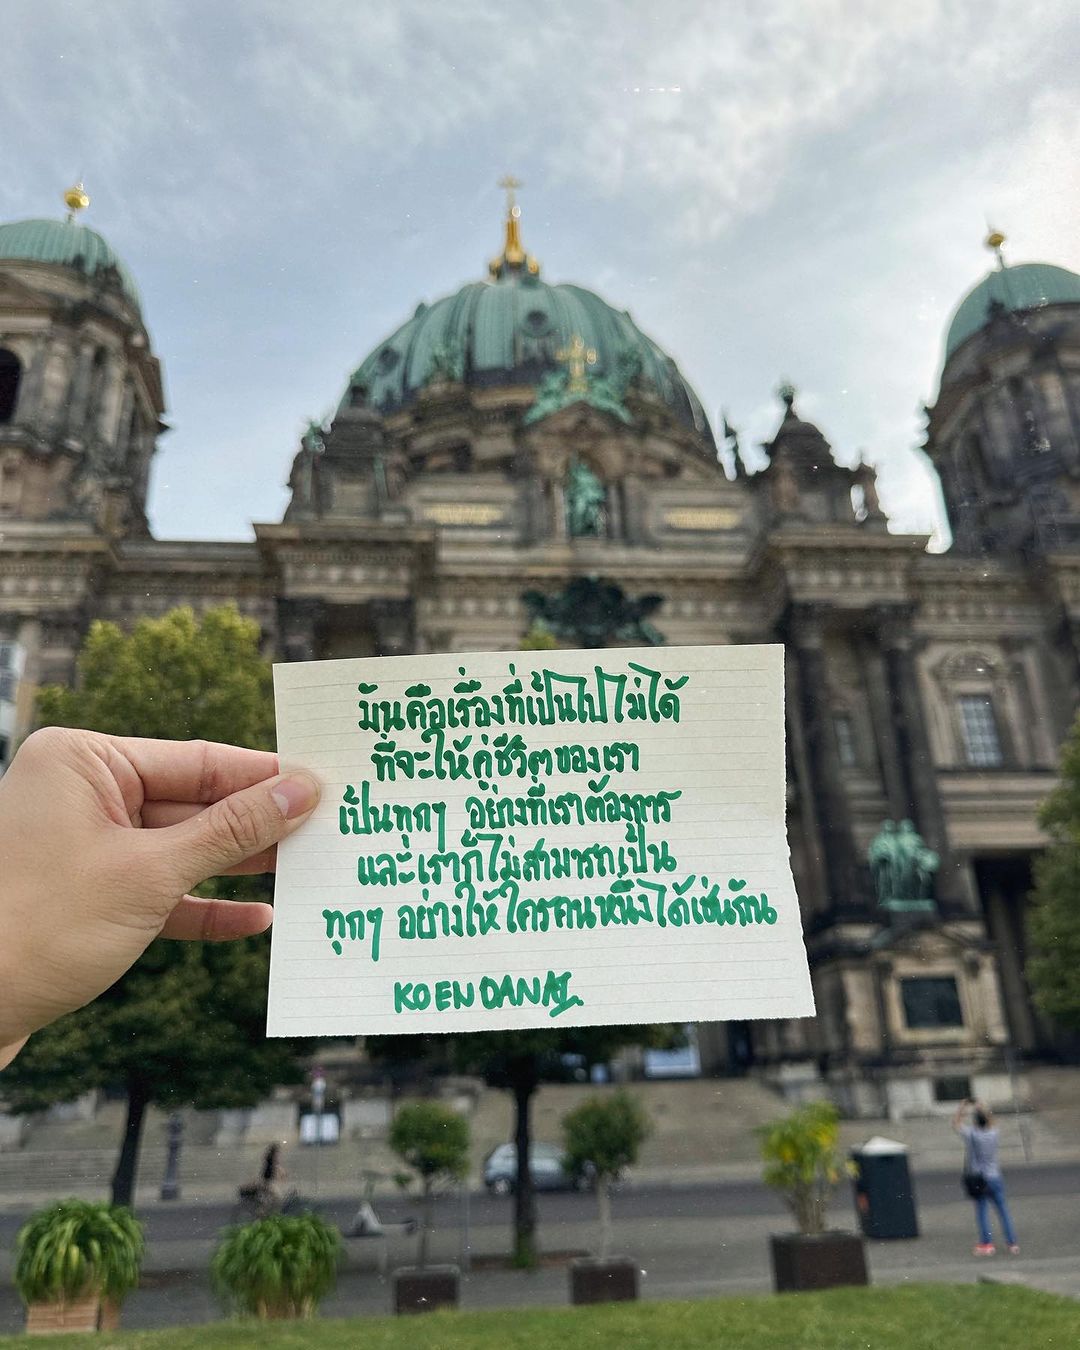 มันคือเรื่องที่เป็นไปไม่ได้
ที่จะให้คู่ชีวิตของเรา
เป็นทุกๆ อย่างที่เราต้องการ
และเราก็ไม่สามารถเป็น
ทุกๆ อย่างให้ใครคนหนึ่งได้เช่นกัน
KOENDANAI